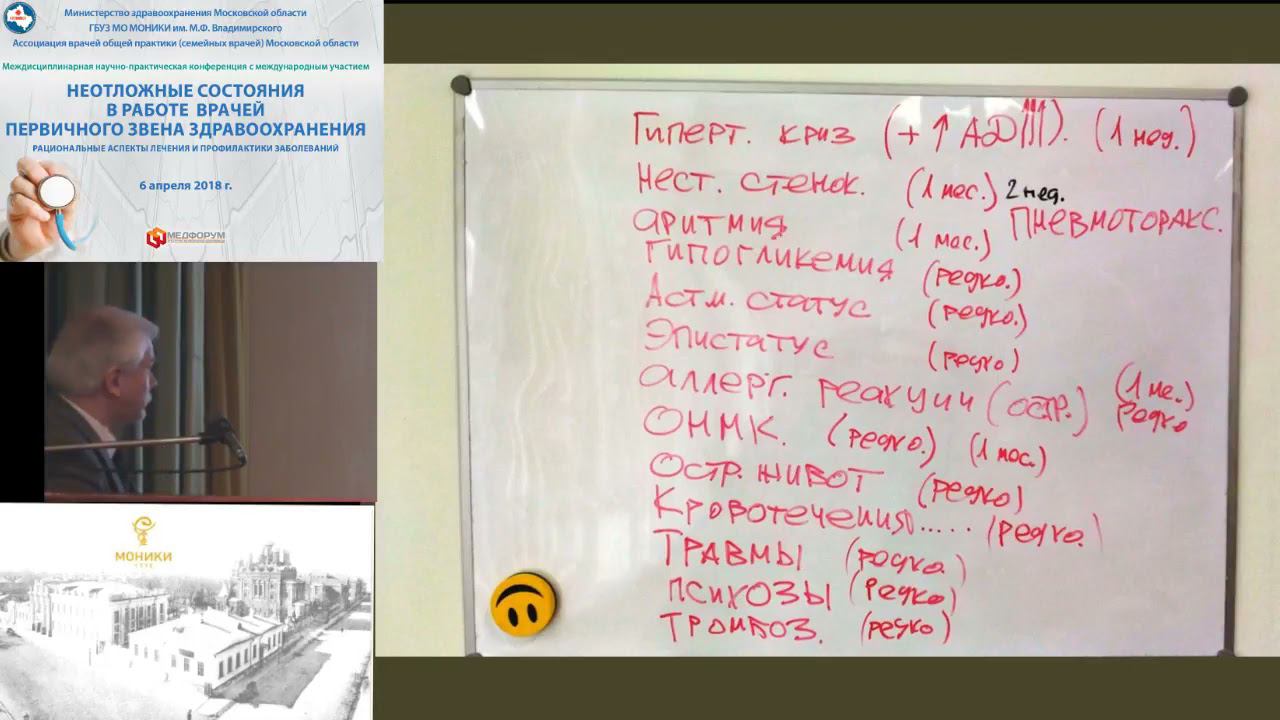 Министерство здравоохранения Московской области
ГБУЗ МО МОНИКИ им. М.Ф. Владимирского
Ассоциация врачей общей практики (семейных врачей) Московской области
Междисциплинарная научно-практическая конференция с международным участием
НЕОТЛОЖНЫЕ СОСТОЯНИЯ
В РАБОТЕ ВРАЧЕЙ
ПЕРВИЧНОГО ЗВЕНА ЗДРАВООХРАНЕНИЯ
РАЦИОНАЛЬНЫЕ АСПЕКТЫ ЛЕЧЕНИЯ И ПРОФИЛАКТИКИ ЗАБОЛЕВАНИЙ
6 апреля 2018 г.
МЕДФОРУМ
МОНИКИ
1775
Гиперт. криз (+ ↑ АД!!!). (1 нед.)
Нест. стенок. (1 мес.) 2 нед.
аритмия (1 мес.) Пневмоторакс.
Гипогликемия (редко.)
Астм. статус (редко.)
Эпистатус (редко)
аллерг. реакции (остр.) (1 ме.) редко
ОНМК. (редко.) (1 мес.)
Остр. живот (редко)
Кровотечения..... (редко.)
Травмы (редко.)
Психозы (редко)
Тромбоз. (редко)